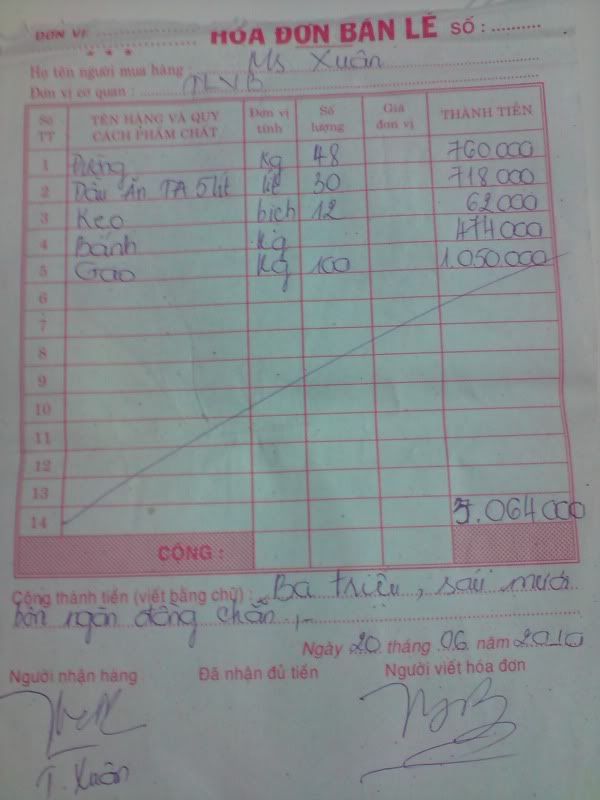 ĐƠN VỊ ........ HÓA ĐƠN BÁN LẺ SỐ : ..........
* * *
Họ tên người mua hàng : Ms Xuân
Đơn vị cơ quan :
Số TT TÊN HÀNG VÀ QUY CÁCH PHẨM CHẤT Đơn vị tính Số lượng Giá đơn vị THÀNH TIỀN
1 Đường kg 48 760 000
2 Dầu ăn TA 5 lít lít 30 718 000
3 Kẹo bịch 12 62 000
4 Bánh kg 474 000
5 Gạo kg 100 1.050.000
6
7
8
9
10
11
12
13
14 3.064 000
CỘNG :
Cộng thành tiền (viết bằng chữ) : Ba triệu, sáu mươi
bốn ngàn đồng chẵn
Ngày 20 tháng 06 năm 2010
Người nhận hàng Đã nhận đủ tiền Người viết hóa đơn
T. Xuân